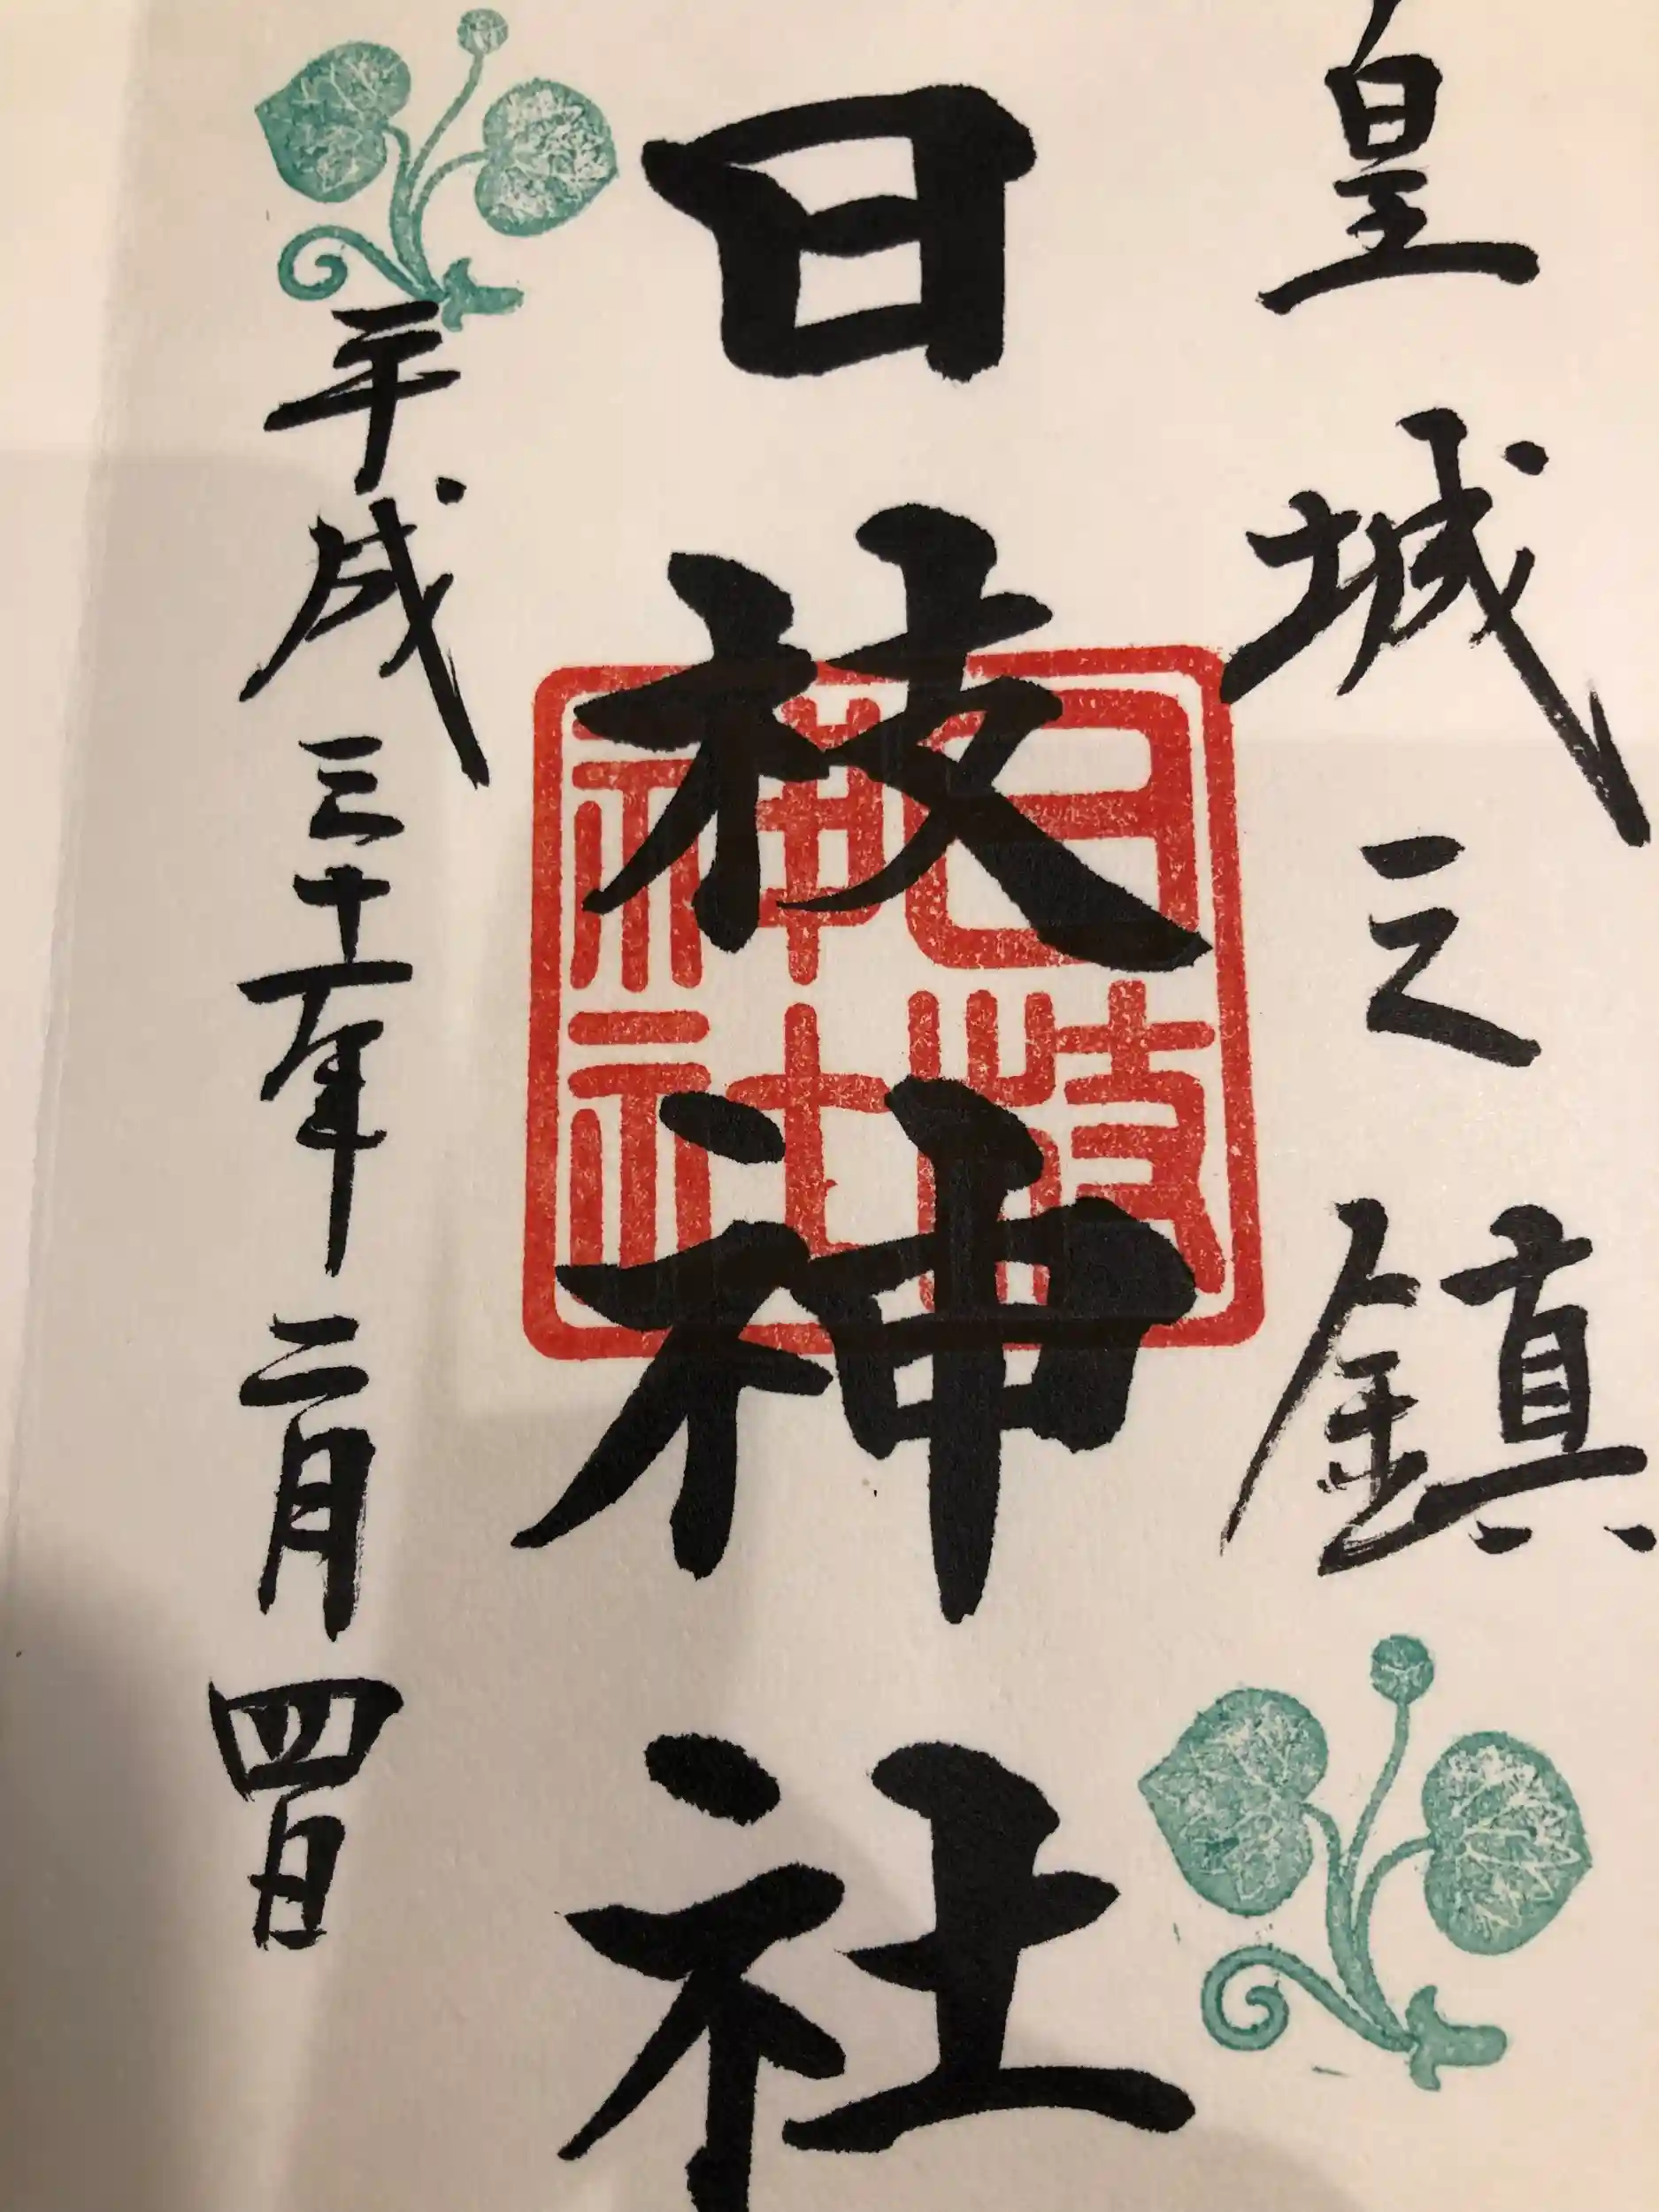 皇城之鎮
日枝神社
日枝神社
平成三十一年二月四日